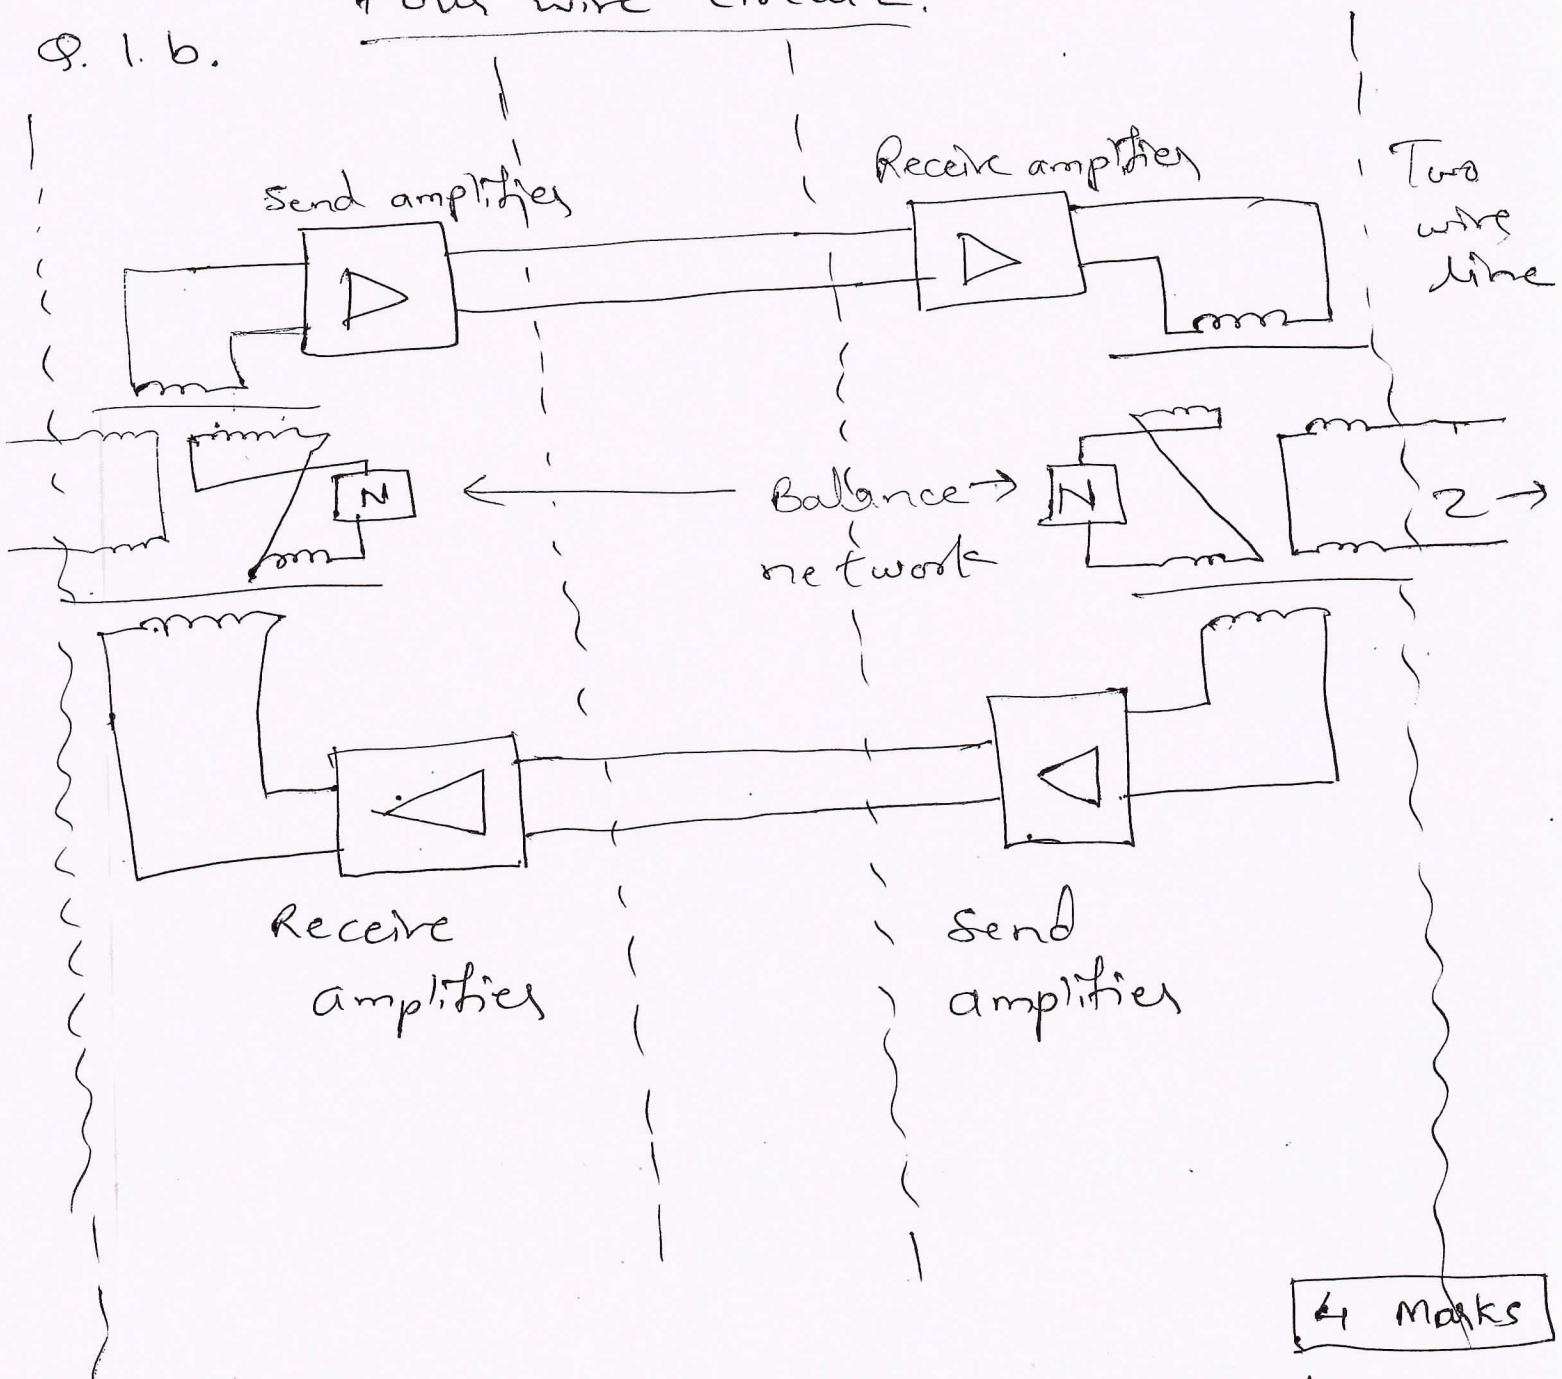 Four wire circuit.
Q. 1. b.
Send amplifier
Receive amplifier
Two
wire
line
N
Ballance
network
N
2
Receive
amplifier
Send
amplifier
4 Marks